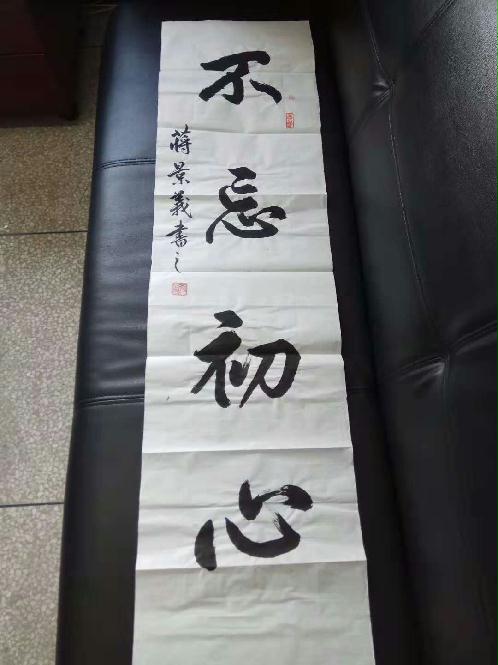 不忘初心
蔣景義書之